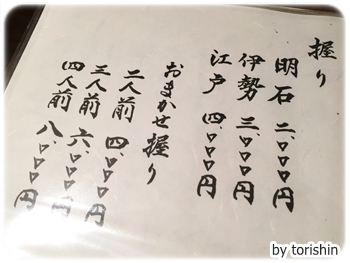 握り
明石 二、〇〇〇円
伊勢 三、〇〇〇円
江戸 四、〇〇〇円
おまかせ握り
二人前 四、〇〇〇円
三人前 六、〇〇〇円
四人前 八、〇〇〇円
by torishin